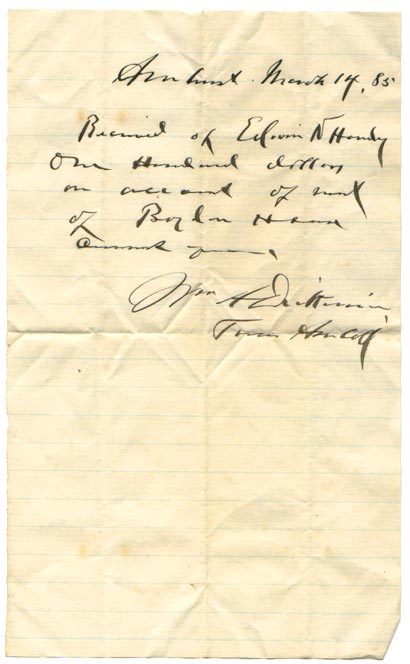 Amherst. March 14, 85
Received of Edwin N Handy
One Hundred dollars
on account of rent
of Boylen House
Current year,
Wm A Dickinson,
Treas Am Coll